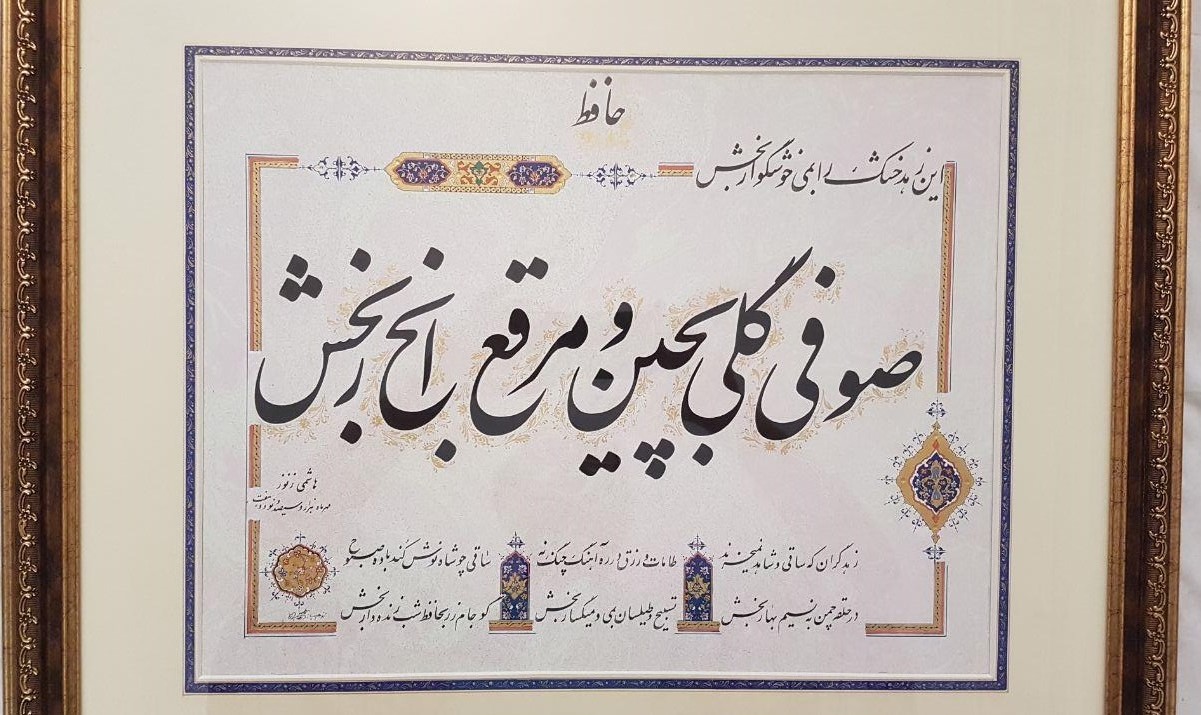 حافظ
این زهد خشک را بمی خوشگوار بخش
صوفی گلی بچین و مرقع بخار بخش
هاشمی زنوز
مهرماه هزار و سیصد و نود و هفت
زهد گران که ساقی و شاهد نمیخرند طامات و زرق در ره آهنگ چنگ نه ساقی چو شاه نوش کند باده صبوح
در حلقه چمن به نسیم بهار بخش تسبیح و طیلسان بمی و میگسار بخش گو جام زر بحافظ شب زنده دار بخش